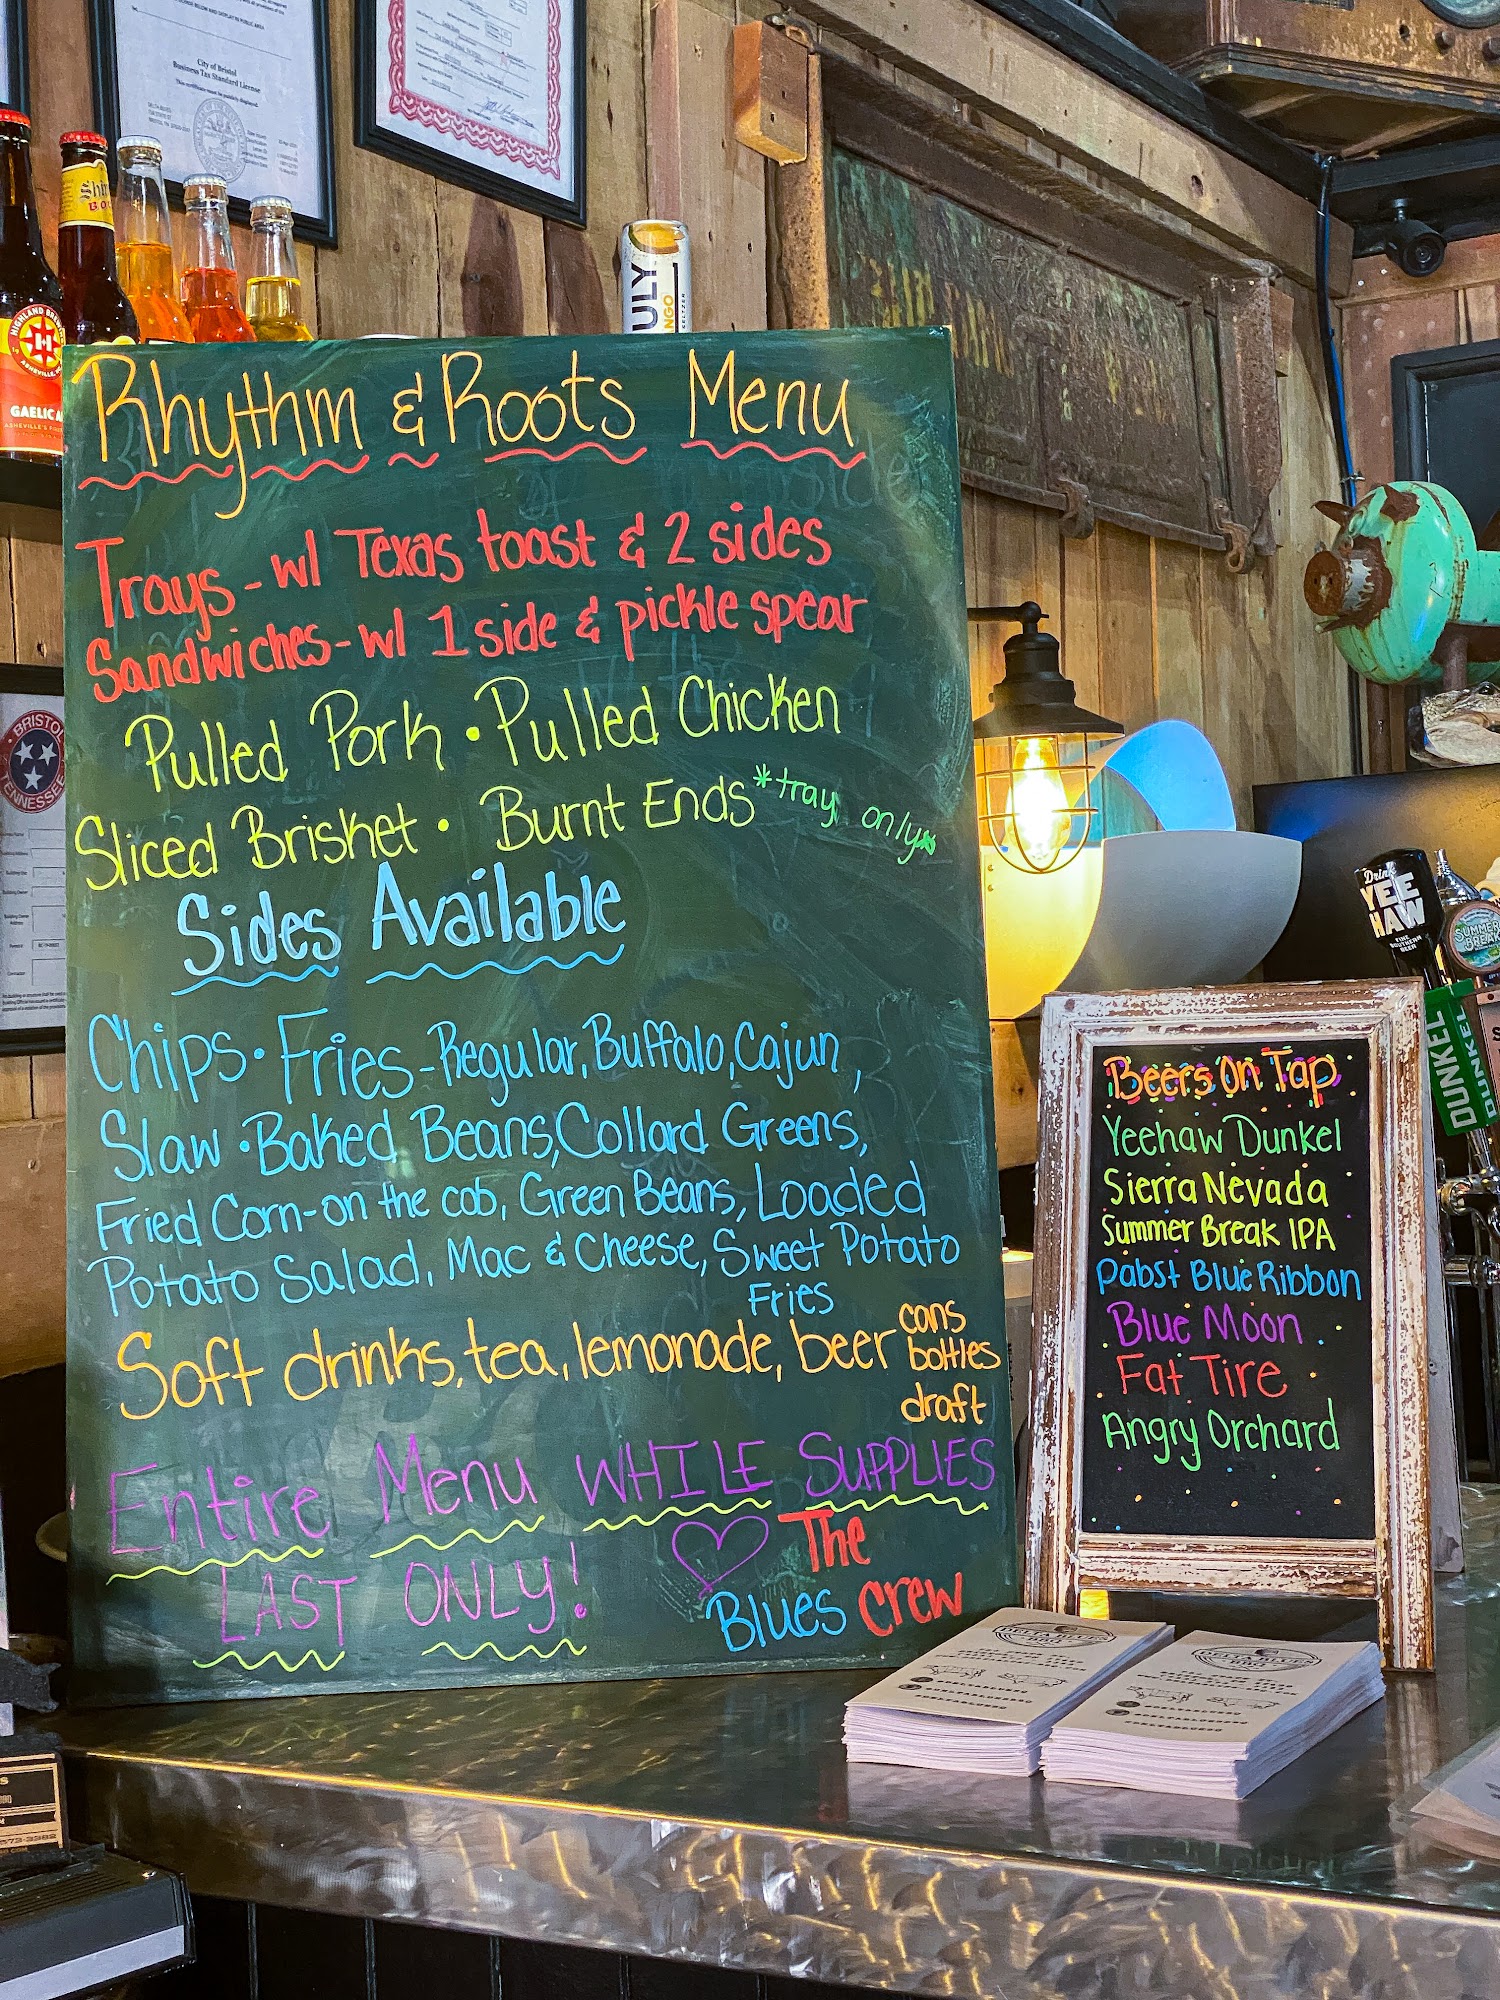 City of Bristol
Business Tax Standard License
HIGHLAND BREWING
ASHEVILLE, NC
GAELIC
Rhythm & Roots Menu
Trays - w/ Texas toast & 2 sides
Sandwiches - w/ 1 side & pickle spear
Pulled Pork • Pulled Chicken
Sliced Brisket • Burnt Ends *tray only*
Sides Available
Chips • Fries - Regular, Buffalo, Cajun,
Slaw • Baked Beans, Collard Greens,
Fried Corn-on the cob, Green Beans, Loaded
Potato Salad, Mac & Cheese, Sweet Potato
Fries
Soft drinks, tea, lemonade, beer cans
bottles
draft
Entire Menu WHILE SUPPLIES
LAST ONLY!
The
Blues Crew
BRISTOL
TENNESSEE
Drink
YEE
HAW
SUMMER
BREAK
DUNKEL
DUNKEL
Beers On Tap
Yeehaw Dunkel
Sierra Nevada
Summer Break IPA
Pabst Blue Ribbon
Blue Moon
Fat Tire
Angry Orchard
DELTA BLUES
BBQ